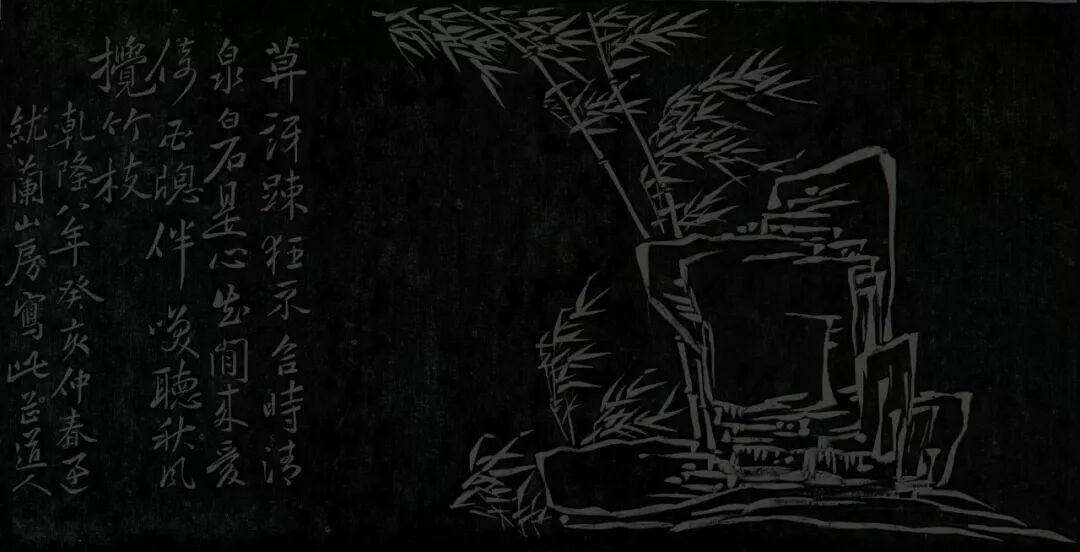 莫訝踈狂不合時清
泉白石是心知閒來愛
倚西牕伴聽秋風
攪竹枝
乾隆八年癸亥仲春
就蘭山房寫此道人